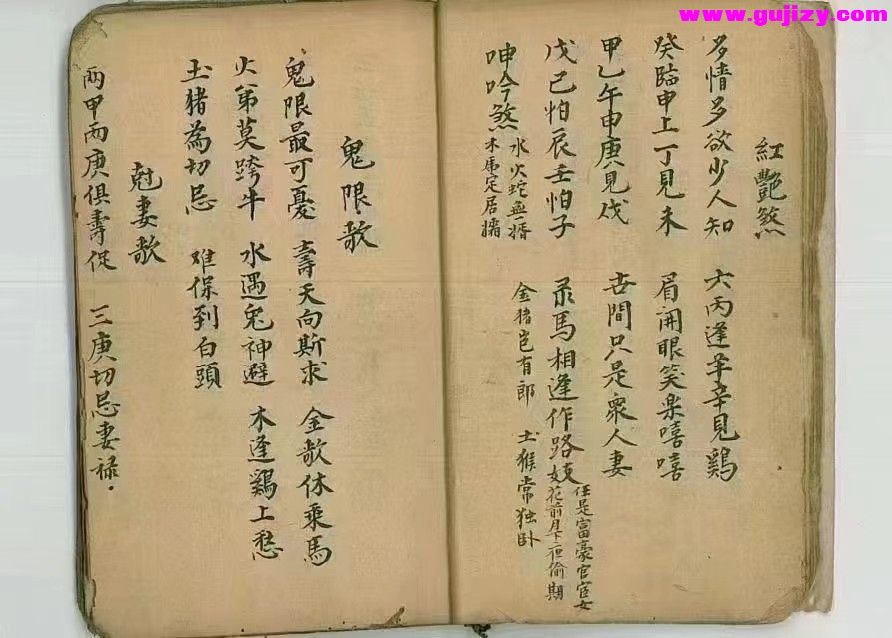 www.gujizy.com
紅艷煞
多情多欲少人知 六丙逢羊辛見鷄
癸臨申上丁見未 眉開眼笑樂嘻嘻
甲乙午申庚見戌 世間只是衆人妻
戊己怕辰壬怕子 祿馬相逢作路妓
任是富豪官宦女
花前月下也偷期
呻吟煞
水火蛇無壻
木虎定居孀
金猪岂有郎 土猴常独卧
鬼限歌
鬼限最可憂 壽夭向斯求 金歌休乘馬
火弟莫跨牛 水遇兔神避 木逢鷄上愁
土猪為切忌 难保到白頭
尅妻歌
两甲两庚俱壽促 三庚切忌妻禄.